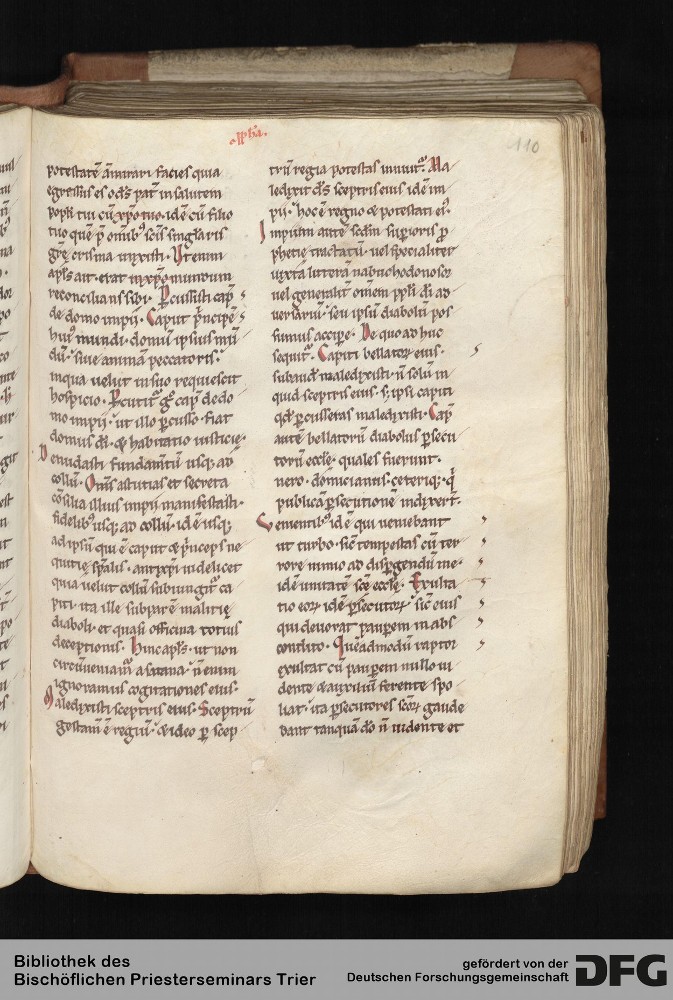 110
potestatē āmirari facies quia
egressus es o ds̄ pat̄ in salutem
popli tui cū xp̄o tuo. idē cū filio
tuo quē p̄ omīb; scīs singlaris
grē crisma unxisti. Ut enim
apls ait. erat in xp̄o mundum
reconcilians sibi. Pcussisti cap̄
de domo impii. Caput p̄ncipē
hui; mundi. domū ipsius mū
dū. siue animā peccatoris.
inqua uelut in suo requiescit
hospicio. Pcutit̄ g̊ cap̄ de do
mo impii. ut illo p̄cusso. fiat
domus dī. & habitatio iusticię.
Denudasti fundam̄tū usq; ad
collū. Om̄s astutias et secreta
cōsilia illius impii manifestasti.
fidelib; usq; ad collū. idē usq;
ad ipsū qui ē caput & p̄nceps ne
quitię sp̄alis. antixp̄i uidelicet
quia uelut collū subiungit̄ ca
piti. ita ille subparē malitię
diaboli. et quasi officina totius
deceptionis. Hinc apls. ut non
circūueniam̄ a satana. n̄ enim
ignoramus cogitationes eius.
Maledixisti sceptris eius. Sceptrū
gestam̄ ē regiū. & ideo p̱ scep
trū regia potestas innuit̄. Ma
ledixit ds̄ sceptris eius idē im
pii. hoc ē regno & potestati ei;.
Impium autē scdm̄ supioris p̄
phetię tractatū. uel specialiter
iuxta litterā nabuchodonosor
uel generalit̄ om̄em ppli dī ad
uersariū. seu ipsū diabolū pos
sumus accipe. De quo ad huc
sequit̄. Capiti bellator eius.
subaud̄ maledixisti. n̄ solū in
quid sceptris eius. s; ipsi capiti
qd̄ p̄cusseras maledixisti. Cap̄
autē bellatorū diabolus p̄secu
torū eccłę. quales fuerunt.
nero. domicianus. ceteriq; q̇
publicā p̄secutionē indixer̄t.
Uementib; idē qui ueniebant
ut turbo. sic̄ tempestas cū ter
rore nimio ad disp̄gendū me.
idē unitatē scē eccłę. Exulta
tio eoꝝ idē p̄secutoꝝ sic̄ eius
qui deuorat paupem in abs
condito. Quēadmodū raptor
exultat cū paupem nullo ui
dente & auxiliū ferente spo
liat. ita p̄secutores scōꝝ gaude
bant tanquā dō n̄ uidente et
Bibliothek des
Bischöflichen Priesterseminars Trier
gefördert von der
Deutschen Forschungsgemeinschaft
DFG